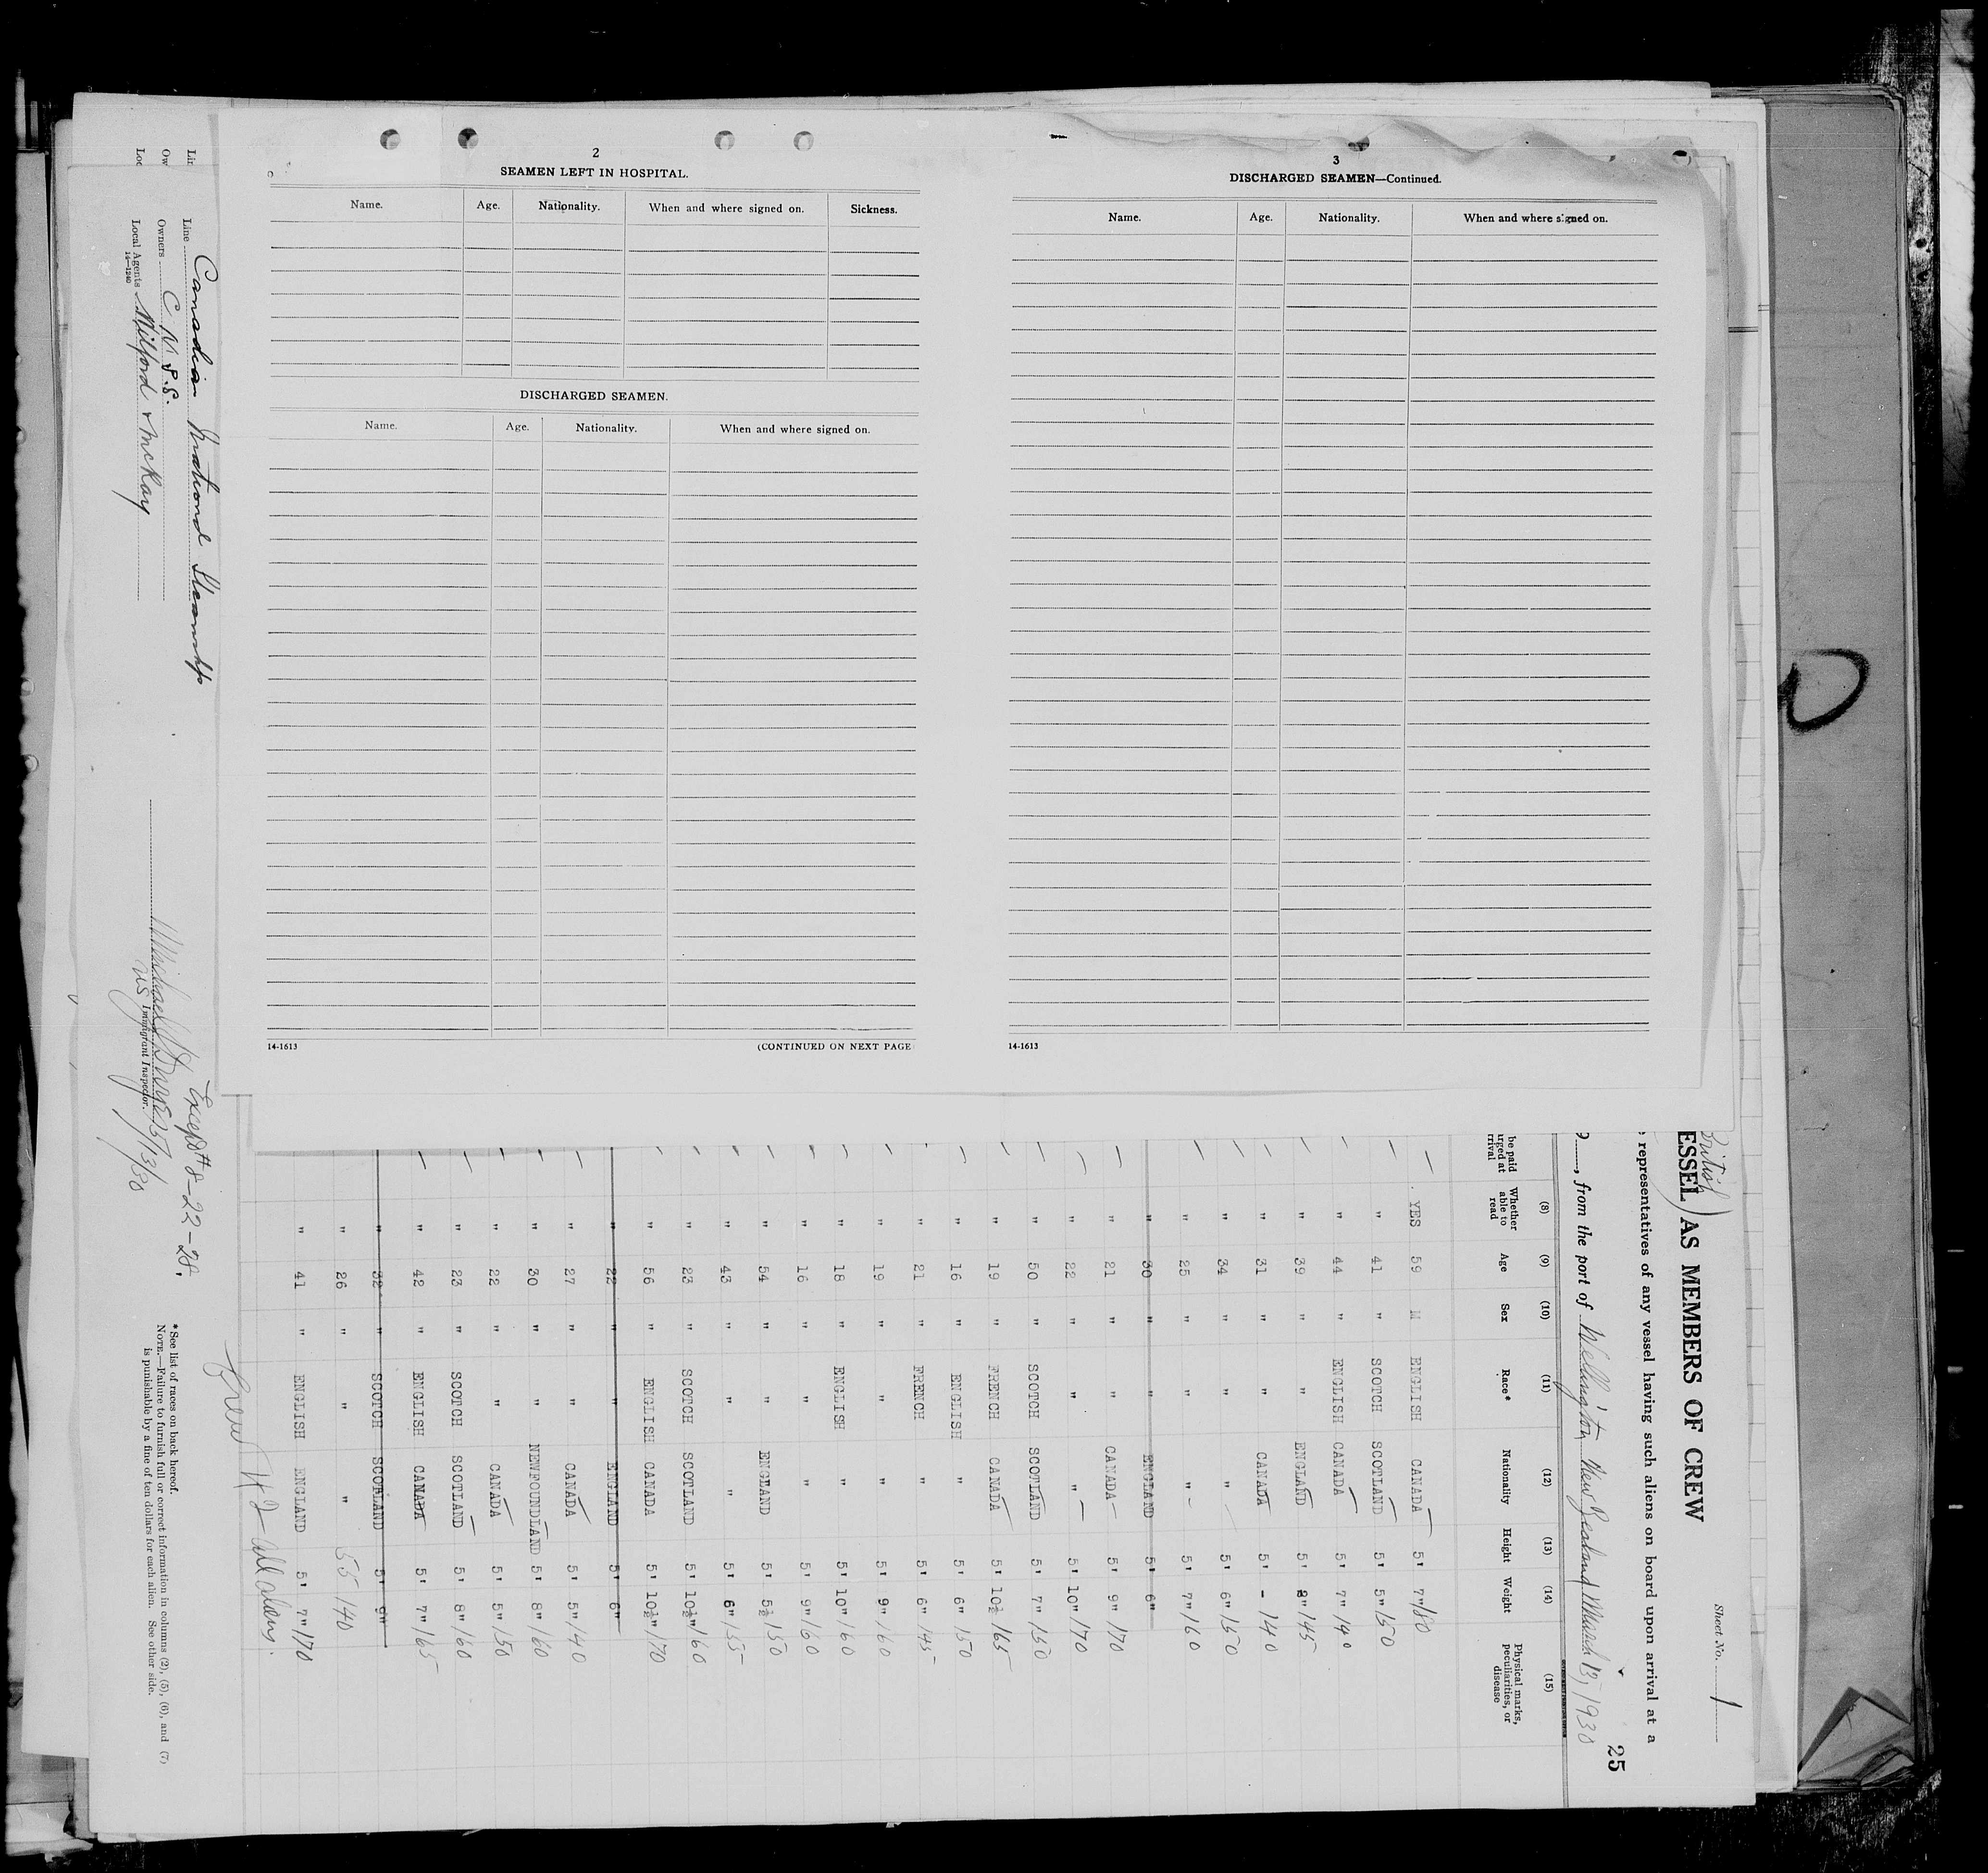 2
SEAMEN LEFT IN HOSPITAL.
Name. Age. Nationality. When and where signed on. Sickness.
DISCHARGED SEAMEN.
Name. Age. Nationality. When and where signed on.
14-1613 (CONTINUED ON NEXT PAGE
3
DISCHARGED SEAMEN—Continued.
Name. Age. Nationality. When and where signed on.
14-1613
Sheet No. 1
British
ESSEL) AS MEMBERS OF CREW
representatives of any vessel having such aliens on board upon arrival at a
25
, from the port of Wellington New Zealand March 13, 1930
(8) (9) (10) (11) (12) (13) (14) (15)
be paid
rged at
rrival
Whether able to read
Age
Sex
Race*
Nationality
Height
Weight
Physical marks, peculiarities, or disease
YES 59 M ENGLISH CANADA 5' 7" 180
" 41 " SCOTCH SCOTLAND 5' 5" 150
" 44 " ENGLISH CANADA 5' 7" 140
" 39 " " ENGLAND 5' 8" 145
" 31 " " CANADA 5' - 140
" 34 " " " 5' 6" 150
" 25 " " " 5' 7" 160
" 30 " " ENGLAND 5' 6"
" 21 " " CANADA 5' 9" 170
" 22 " " " 5' 10" 170
" 50 " SCOTCH SCOTLAND 5' 7" 150
" 19 " FRENCH CANADA 5' 10½ 165
" 16 " ENGLISH " 5' 6" 150
" 21 " FRENCH " 5' 6" 145
" 19 " " " 5' 9" 160
" 18 " ENGLISH " 5' 10" 160
" 16 " " " 5' 9" 160
" 54 " " ENGLAND 5' 5½ 150
" 43 " " " 5' 6" 155
" 23 " SCOTCH SCOTLAND 5' 10½" 160
" 56 " ENGLISH CANADA 5' 10½" 170
" 22 " " ENGLAND 5' 6"
" 27 " " CANADA 5' 5" 140
" 30 " " NEWFOUNDLAND 5' 8" 160
" 22 " " CANADA 5' 5" 150
" 23 " SCOTCH SCOTLAND 5' 8" 160
" 42 " ENGLISH CANADA 5' 7" 165
" 32 " SCOTCH SCOTLAND 5' 9"
" 26 " " " 55 140
" 41 " ENGLISH ENGLAND 5' 7" 170
all aliens.
Line Canadian National Steamship
Owners C.N.S.S.
Local Agents Milford & McKay
14-1240
Lin
Ow
Loc
Except # 8-22-28.
25/3/30
US Immigrant Inspector.
*See list of races on back hereof.
NOTE.—Failure to furnish full or correct information in columns (2), (5), (6), and (7)
is punishable by a fine of ten dollars for each alien. See other side.